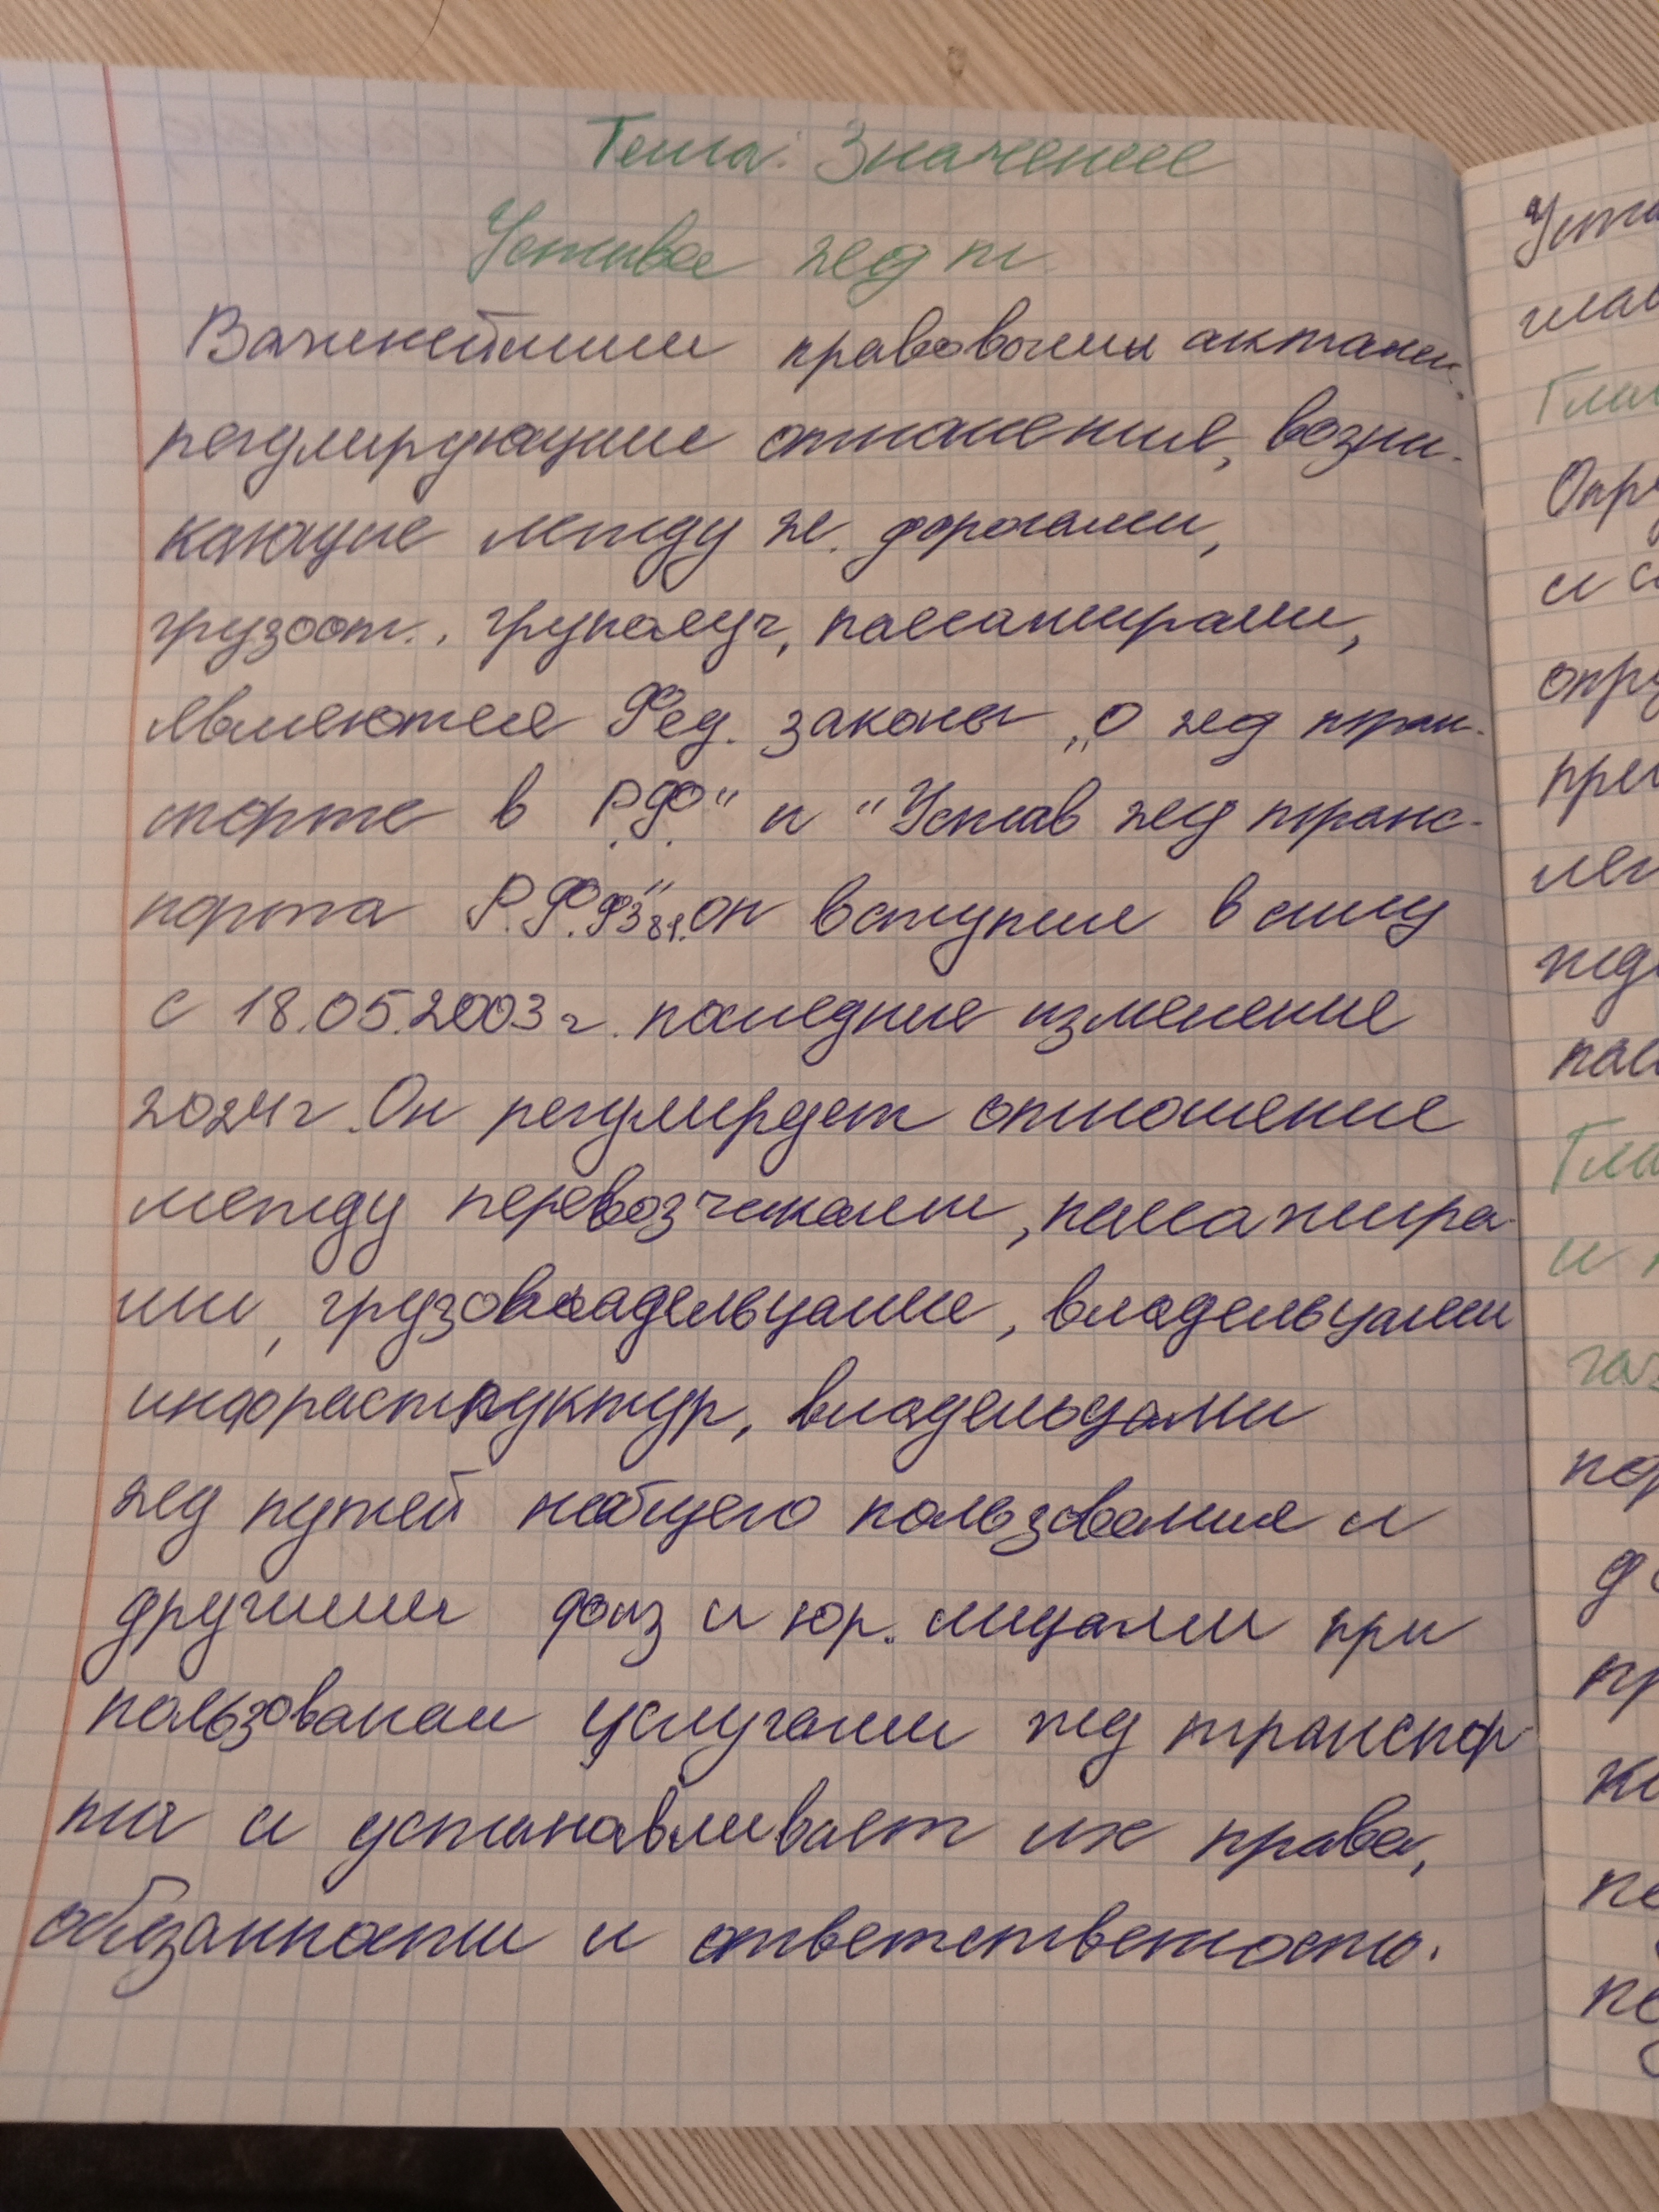 Тема: Значение
Устава жд т.
Важнейшими правовыми актами,
регулирующие отношения, возни-
кающие между ж. дорогами,
грузоот., груполуч, пассажирами,
являются Фед. законы „О жд тран-
спорте в Р.Ф" и "Устав жд транс-
порта Р.Ф." ФЗ 81. он вступил в силу
с 18.05.2003г. последние изменение
2024г. Он регулирует отношение
между перевозчиками, пассажира-
ми, грузовладельцами, владельцами
инфраструктур, владельцами
жд путей необщего пользования и
другими физ и юр. лицами при
пользовании услугами жд транспор-
та и устанавливает их права,
обязанности и ответственность.
Уста
глав
Глав
Опр
и с
опр
пре
пас
Гла
и
пр